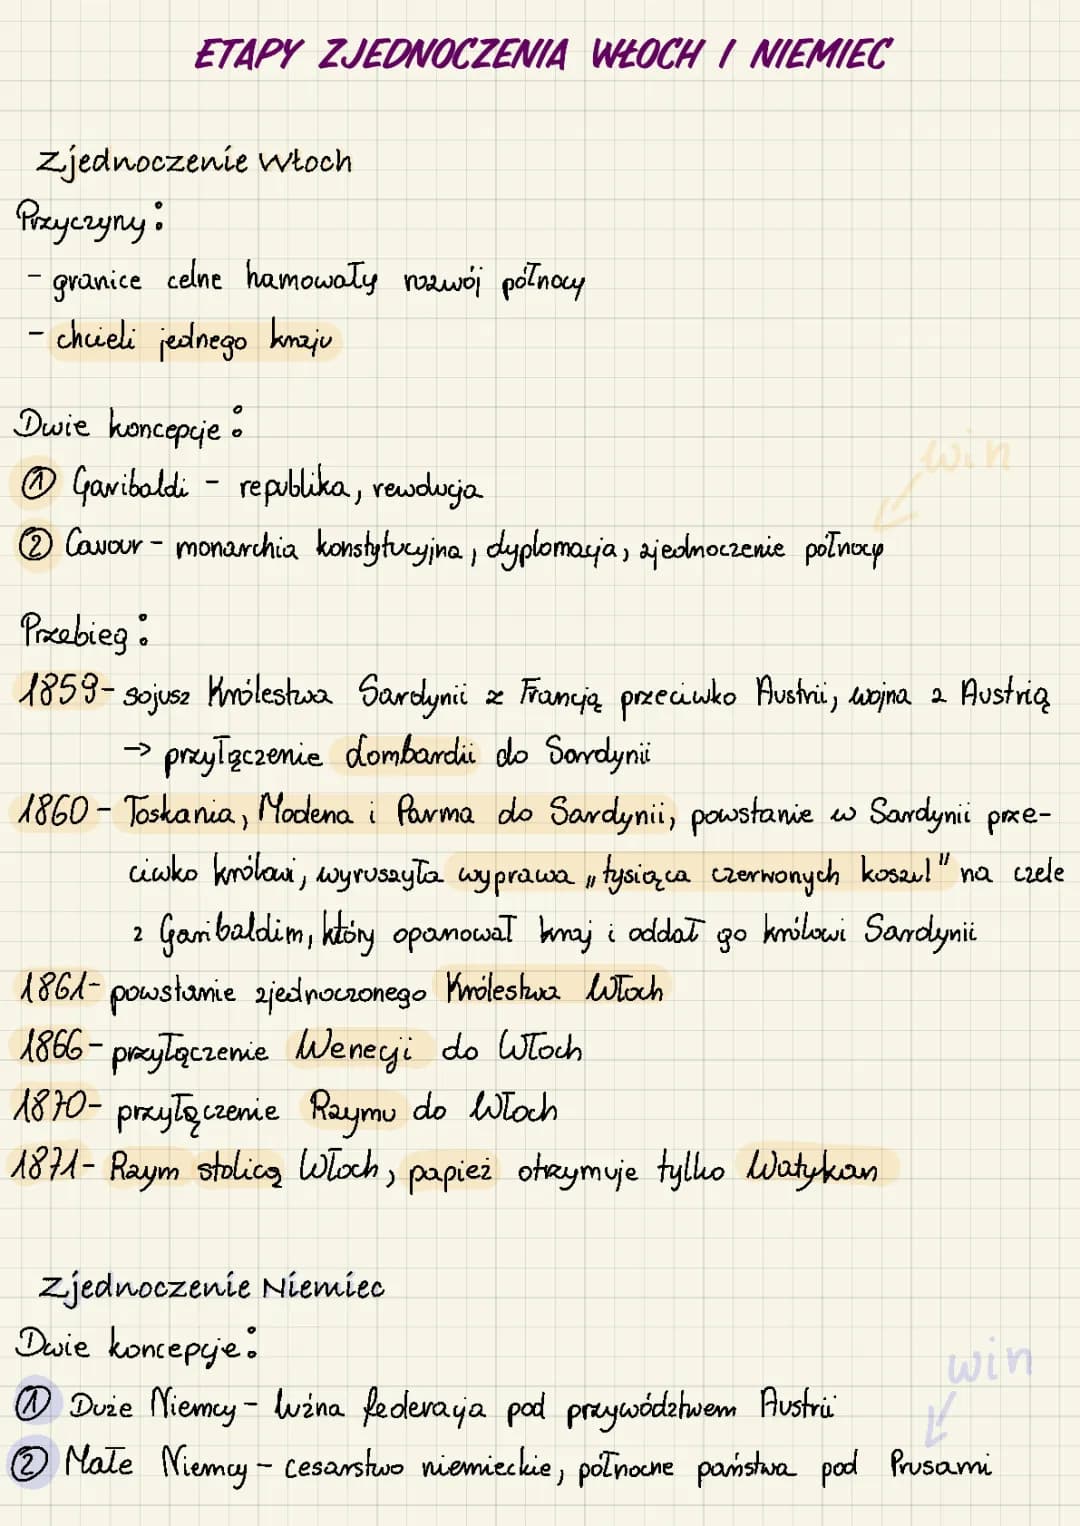 ETAPY ZJEDNOCZENIA WŁOCH I NIEMIEC
Zjednoczenie Włoch
Przyczyny:
- granice celne hamowały rozwój północy
- chcieli jednego kraju
Dwie koncepcje:
win
① Garibaldi - republika, rewolucja
② Cavour - monarchia konstytucyjna, dyplomacja, zjednoczenie północy
Przebieg:
1859- sojusz Królestwa Sardynii z Francją przeciwko Austrii, wojna z Austrią
→ przyłączenie Lombardii do Sardynii
1860 - Toskania, Modena i Parma do Sardynii, powstanie w Sardynii prze-
ciwko królowi, wyruszyła wyprawa „tysiąca czerwonych koszul" na czele
z Garibaldim, który opanował kraj i oddał go królowi Sardynii
1861- powstanie zjednoczonego Królestwa Włoch
1866- przyłączenie Wenecji do Włoch
1870- przyłączenie Rzymu do Włoch
1871- Rzym stolicą Włoch, papież otrzymuje tylko Watykan
Zjednoczenie Niemiec
Dwie koncepcje:
win
① Duże Niemcy - luźna federacja pod przywództwem Austrii
② Małe Niemcy - cesarstwo niemieckie, północne państwa pod Prusami